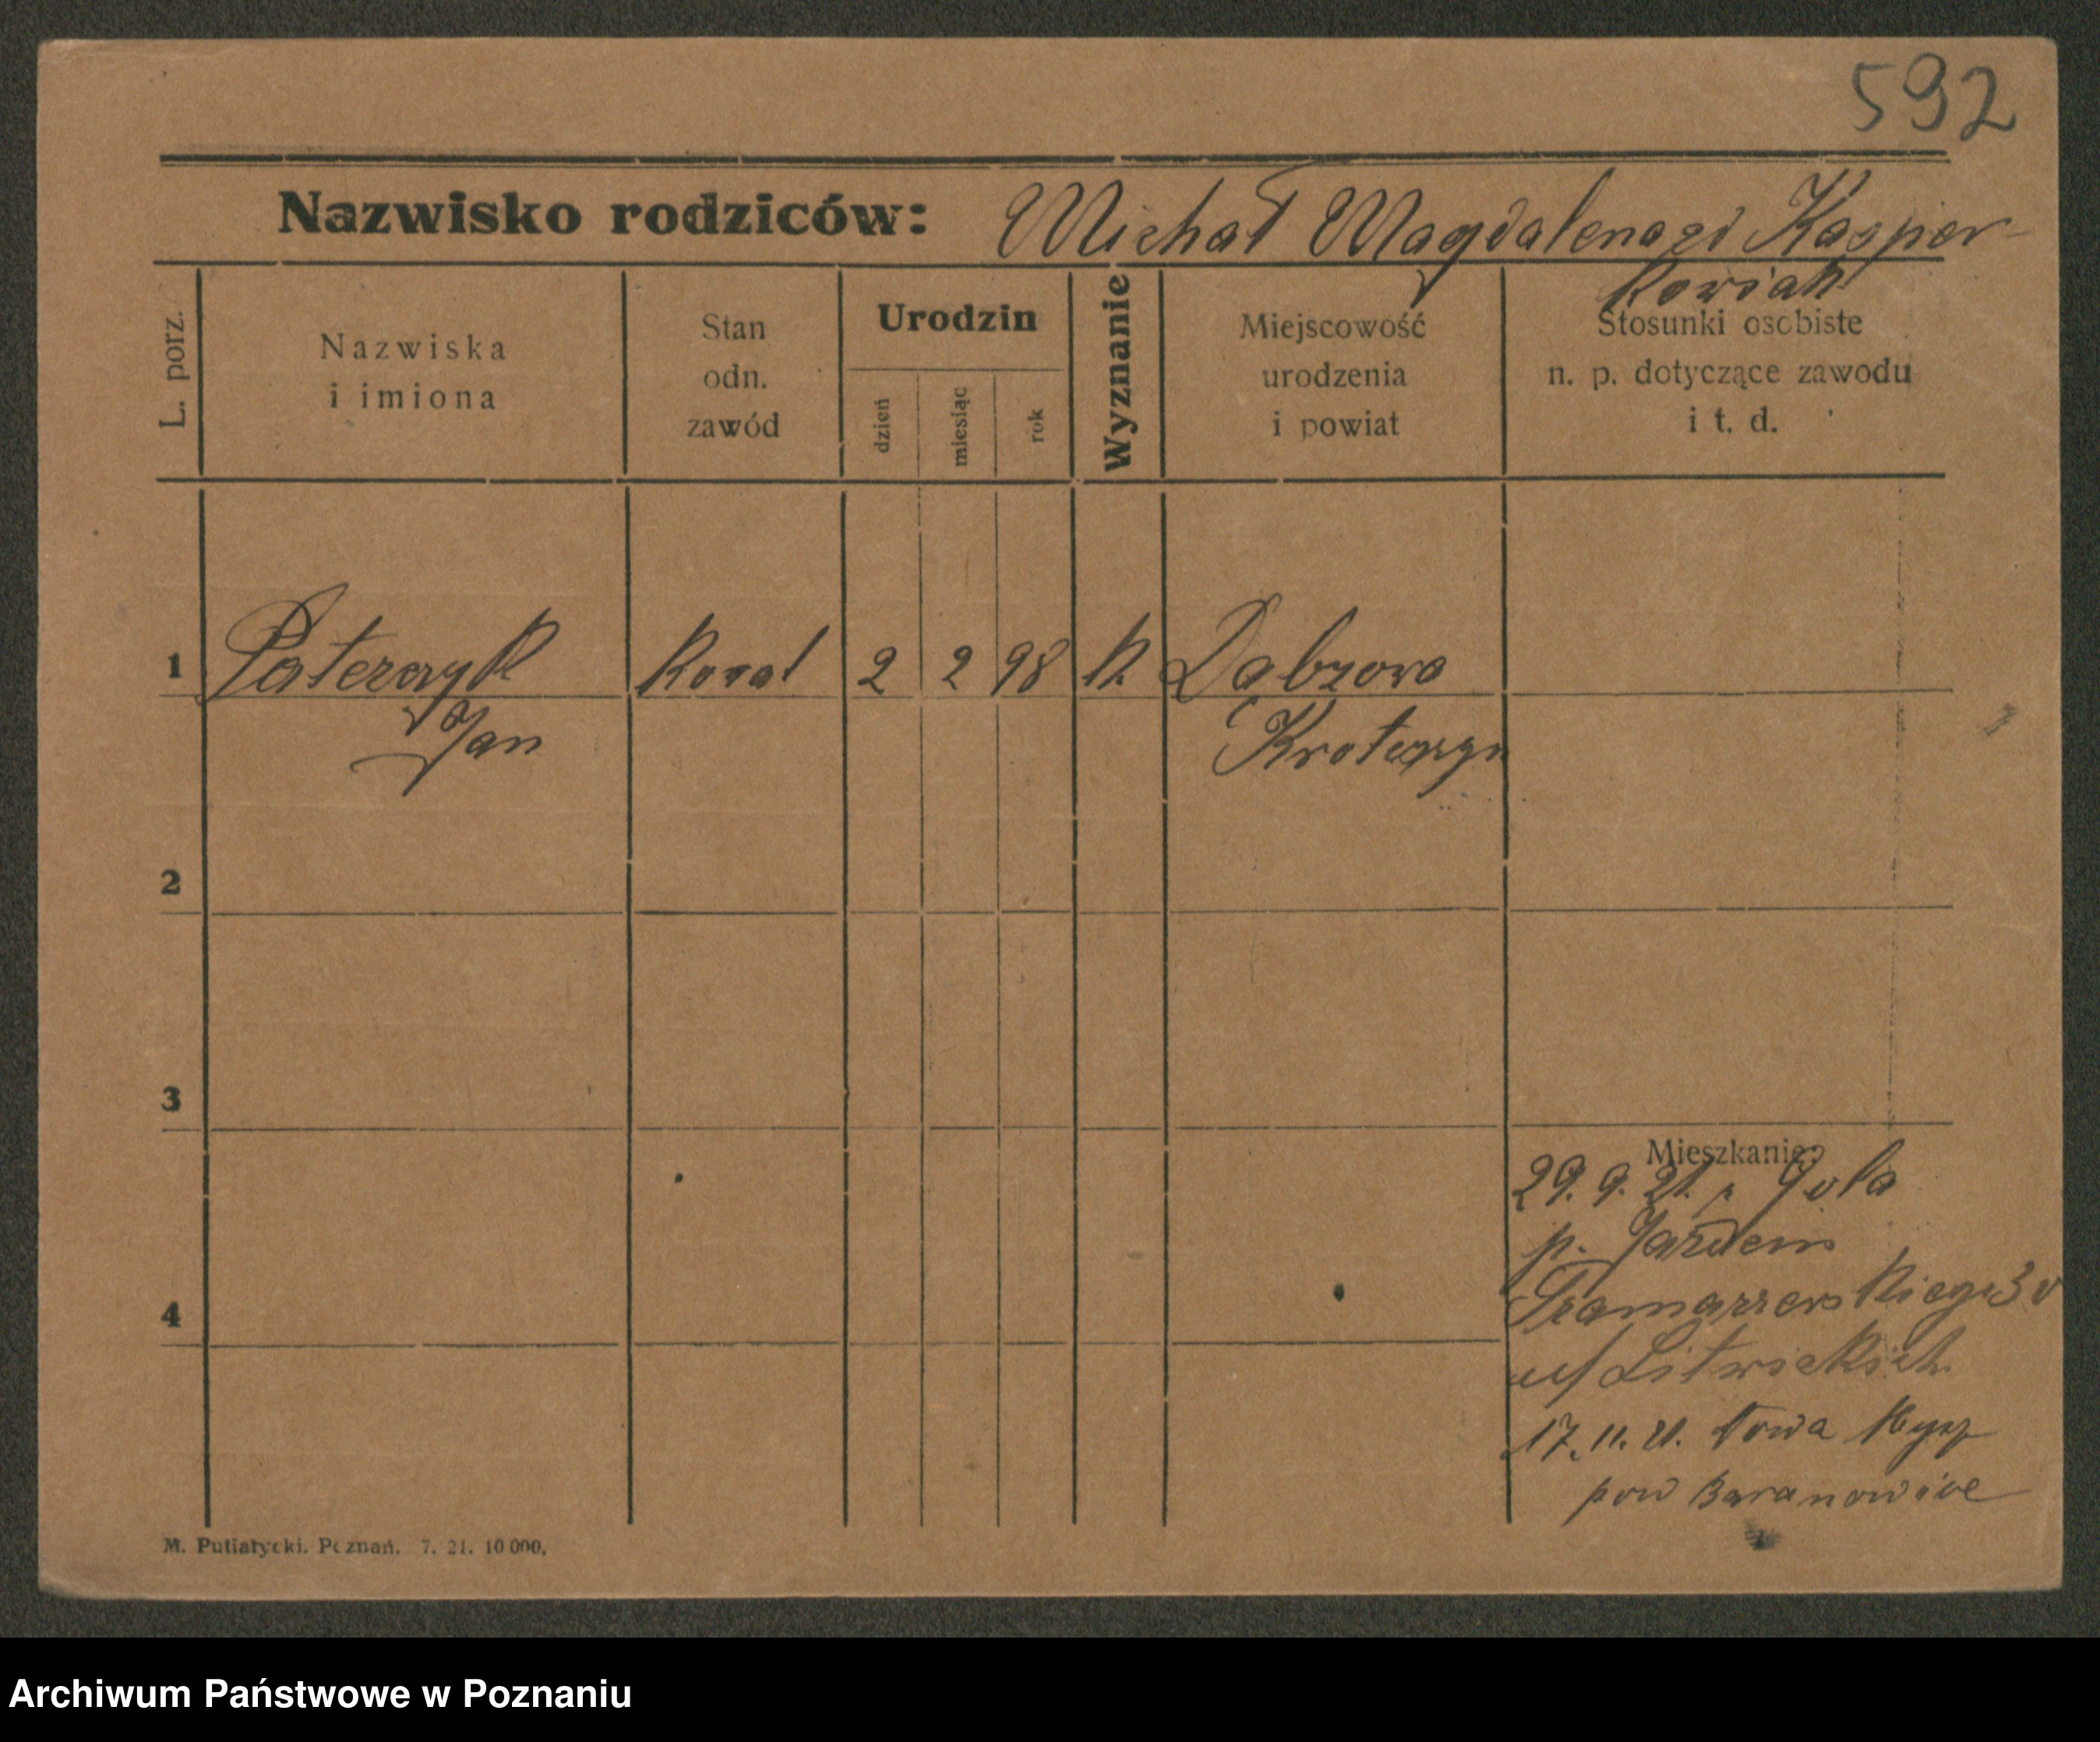 592
Nazwisko rodziców: Michał Magdalena zd Kasper-
kowiak
L. porz.
Nazwiska
i imiona
Stan
odn.
zawód
Urodzin
dzień
miesiąc
rok
Wyznanie
Miejscowość
urodzenia
i powiat
Stosunki osobiste
n. p. dotyczące zawodu
i t. d.
1 Paterczyk Kowal 2 2 98 k. Dąbrowa
Jan Krotoszyn
2
3
Mieszkanie:
29. 9. 21. Gola
p. Jarocin
4
Szamarzewskiego 3
u/ Litwickich
17. 11. 21.
pow Baranowice
M. Putiatycki. Poznań. 7. 21. 10 000.
Archiwum Państwowe w Poznaniu